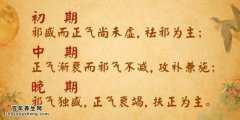 初 期
邪盛而正气尚未虚，祛邪为主；
中 期
正气渐衰而邪气不减，攻补兼施；
晚 期
邪气独盛，正气衰竭，扶正为主。
百年养生网